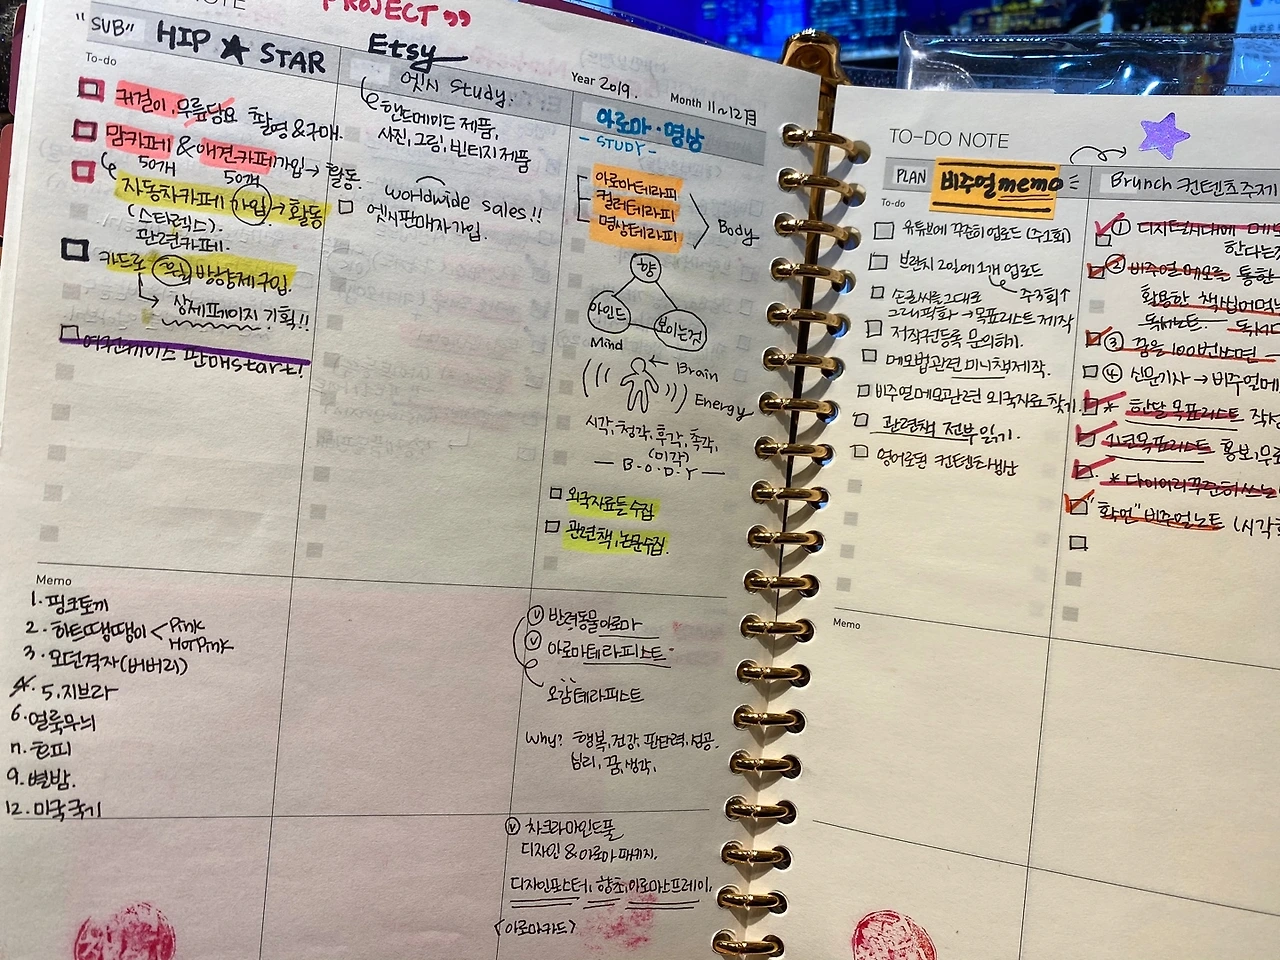 NOTE
PROJECT”
"SUB" HIP ★ STAR
To-do
귀걸이, 무릎담요 촬영 & 구매.
맘카페 & 애견카페가입 → 활동.
50개 50개
자동차카페 가입 → 활동
(스타렉스).
관련카페.
방향제구입.
상세페이지 기획!!
여권케이스 판매start!
Memo
1. 핑크토끼
2. 하트땡땡이 < Pink
HotPink
3. 모던격자(버버리)
5. 지브라
6. 얼룩무늬
n. 호피
9. 별밤.
12. 미국국기
Etsy
엣시 study.
핸드메이드 제품,
사진, 그림, 빈티지제품
worldwide sales!!
엣시판매자가입.
Year 2019. Month 11~12月
아로마·명상
- STUDY -
아로마테라피
컬러테라피
명상테라피
Body
향
마인드
보이는것
Mind
Brain
Energy
시각, 청각, 후각, 촉각,
(미각)
B·O·D·Y
외국자료들수집
관련책, 논문수집.
ⓥ 반려동물아로마
ⓥ 아로마테라피스트
오감테라피스트
Why? 행복, 건강, 판단력, 성공.
심리, 꿈, 생각,
ⓥ 차크라마인드풀
디자인 & 아로마 패키지.
디자인포스터, 향초, 아로마스프레이,
<아로마카드>
TO-DO NOTE
PLAN 비주얼memo
To-do
유튜브에 꾸준히 업로드 (주1회)
브런치 2일에 1개 업로드
주3회↑
손글씨를 그대로
그래픽화 → 목표리스트 제작
저작권등록 문의하기.
메모법관련 미니책제작.
비주얼메모관련 외국자료 찾기.
관련책 전부읽기.
영어로된 컨텐츠발산
Memo
Brunch 컨텐츠주제
① 디지털시대에 메모
한다는것
② 비주얼 메모를 통한
활용한 책씹어먹는
독서노트. 독서
③ 꿈을 100번쓰면
④ 신문기사 → 비주얼메모
* 한달 목표리스트 작성
1년목표리스트 홍보, 무료
* 다이어리꾸준히쓰는
"화면" 비주얼노트 (시각화